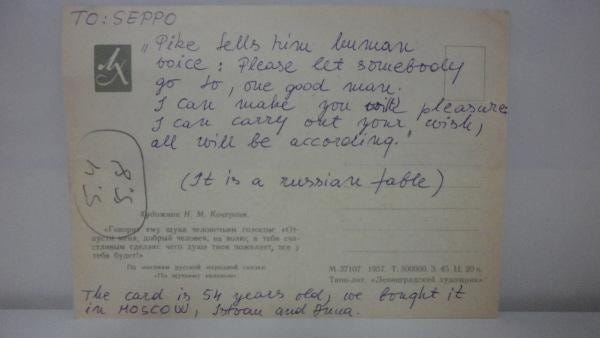 TO: SEPPO
"Pike tells him human
voice: Please let somebody
go to, one good man.
I can make you with pleasure
I can carry out your wish,
all will be according."
(It is a russian fable)
8.5
5.4
Художник Н. М. Кочергин.
«Говорит ему щука человечьим голосом: «От-
пусти меня, добрый человек, на волю; я тебя сча-
стливым сделаю: чего душа твоя пожелает, все у
тебя будет!»
По мотивам русской народной сказки
«По щучьему велению»
М-37107 1957. Т. 500000. З. 45. Ц. 20 к.
Типо-лит. «Ленинградский художник»
The card is 54 years old, we bought it
in MOSCOW, Istvan and Anna.